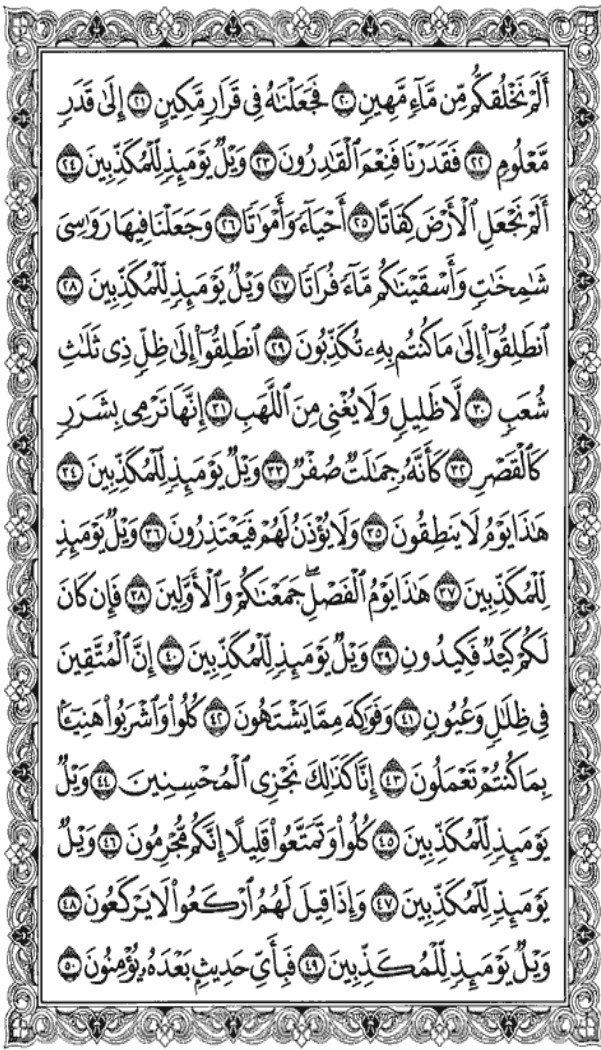 أَلَمْ نَخْلُقكُّم مِّن مَّآءٍ مَّهِينٍ ٢٠ فَجَعَلْنَٰهُ فِى قَرَارٍ مَّكِينٍ ٢١ إِلَىٰ قَدَرٍ
مَّعْلُومٍ ٢٢ فَقَدَرْنَا فَنِعْمَ ٱلْقَٰدِرُونَ ٢٣ وَيْلٌ يَوْمَئِذٍ لِّلْمُكَذِّبِينَ ٢٤
أَلَمْ نَجْعَلِ ٱلْأَرْضَ كِفَاتًا ٢٥ أَحْيَآءً وَأَمْوَٰتًا ٢٦ وَجَعَلْنَا فِيهَا رَوَٰسِىَ
شَٰمِخَٰتٍ وَأَسْقَيْنَٰكُم مَّآءً فُرَاتًا ٢٧ وَيْلٌ يَوْمَئِذٍ لِّلْمُكَذِّبِينَ ٢٨
ٱنطَلِقُوٓا۟ إِلَىٰ مَا كُنتُم بِهِۦ تُكَذِّبُونَ ٢٩ ٱنطَلِقُوٓا۟ إِلَىٰ ظِلٍّ ذِى ثَلَٰثِ
شُعَبٍ ٣٠ لَّا ظَلِيلٍ وَلَا يُغْنِى مِنَ ٱللَّهَبِ ٣١ إِنَّهَا تَرْمِى بِشَرَرٍ
كَٱلْقَصْرِ ٣٢ كَأَنَّهُۥ جِمَٰلَتٌ صُفْرٌ ٣٣ وَيْلٌ يَوْمَئِذٍ لِّلْمُكَذِّبِينَ ٣٤
هَٰذَا يَوْمُ لَا يَنطِقُونَ ٣٥ وَلَا يُؤْذَنُ لَهُمْ فَيَعْتَذِرُونَ ٣٦ وَيْلٌ يَوْمَئِذٍ
لِّلْمُكَذِّبِينَ ٣٧ هَٰذَا يَوْمُ ٱلْفَصْلِ ۖ جَمَعْنَٰكُمْ وَٱلْأَوَّلِينَ ٣٨ فَإِن كَانَ
لَكُمْ كَيْدٌ فَكِيدُونِ ٣٩ وَيْلٌ يَوْمَئِذٍ لِّلْمُكَذِّبِينَ ٤٠ إِنَّ ٱلْمُتَّقِينَ
فِى ظِلَٰلٍ وَعُيُونٍ ٤١ وَفَوَٰكِهَ مِمَّا يَشْتَهُونَ ٤٢ كُلُوا۟ وَٱشْرَبُوا۟ هَنِيٓـًٔا
بِمَا كُنتُمْ تَعْمَلُونَ ٤٣ إِنَّا كَذَٰلِكَ نَجْزِى ٱلْمُحْسِنِينَ ٤٤ وَيْلٌ
يَوْمَئِذٍ لِّلْمُكَذِّبِينَ ٤٥ كُلُوا۟ وَتَمَتَّعُوا۟ قَلِيلًا إِنَّكُم مُّجْرِمُونَ ٤٦ وَيْلٌ
يَوْمَئِذٍ لِّلْمُكَذِّبِينَ ٤٧ وَإِذَا قِيلَ لَهُمُ ٱرْكَعُوا۟ لَا يَرْكَعُونَ ٤٨
وَيْلٌ يَوْمَئِذٍ لِّلْمُكَذِّبِينَ ٤٩ فَبِأَىِّ حَدِيثٍۭ بَعْدَهُۥ يُؤْمِنُونَ ٥٠